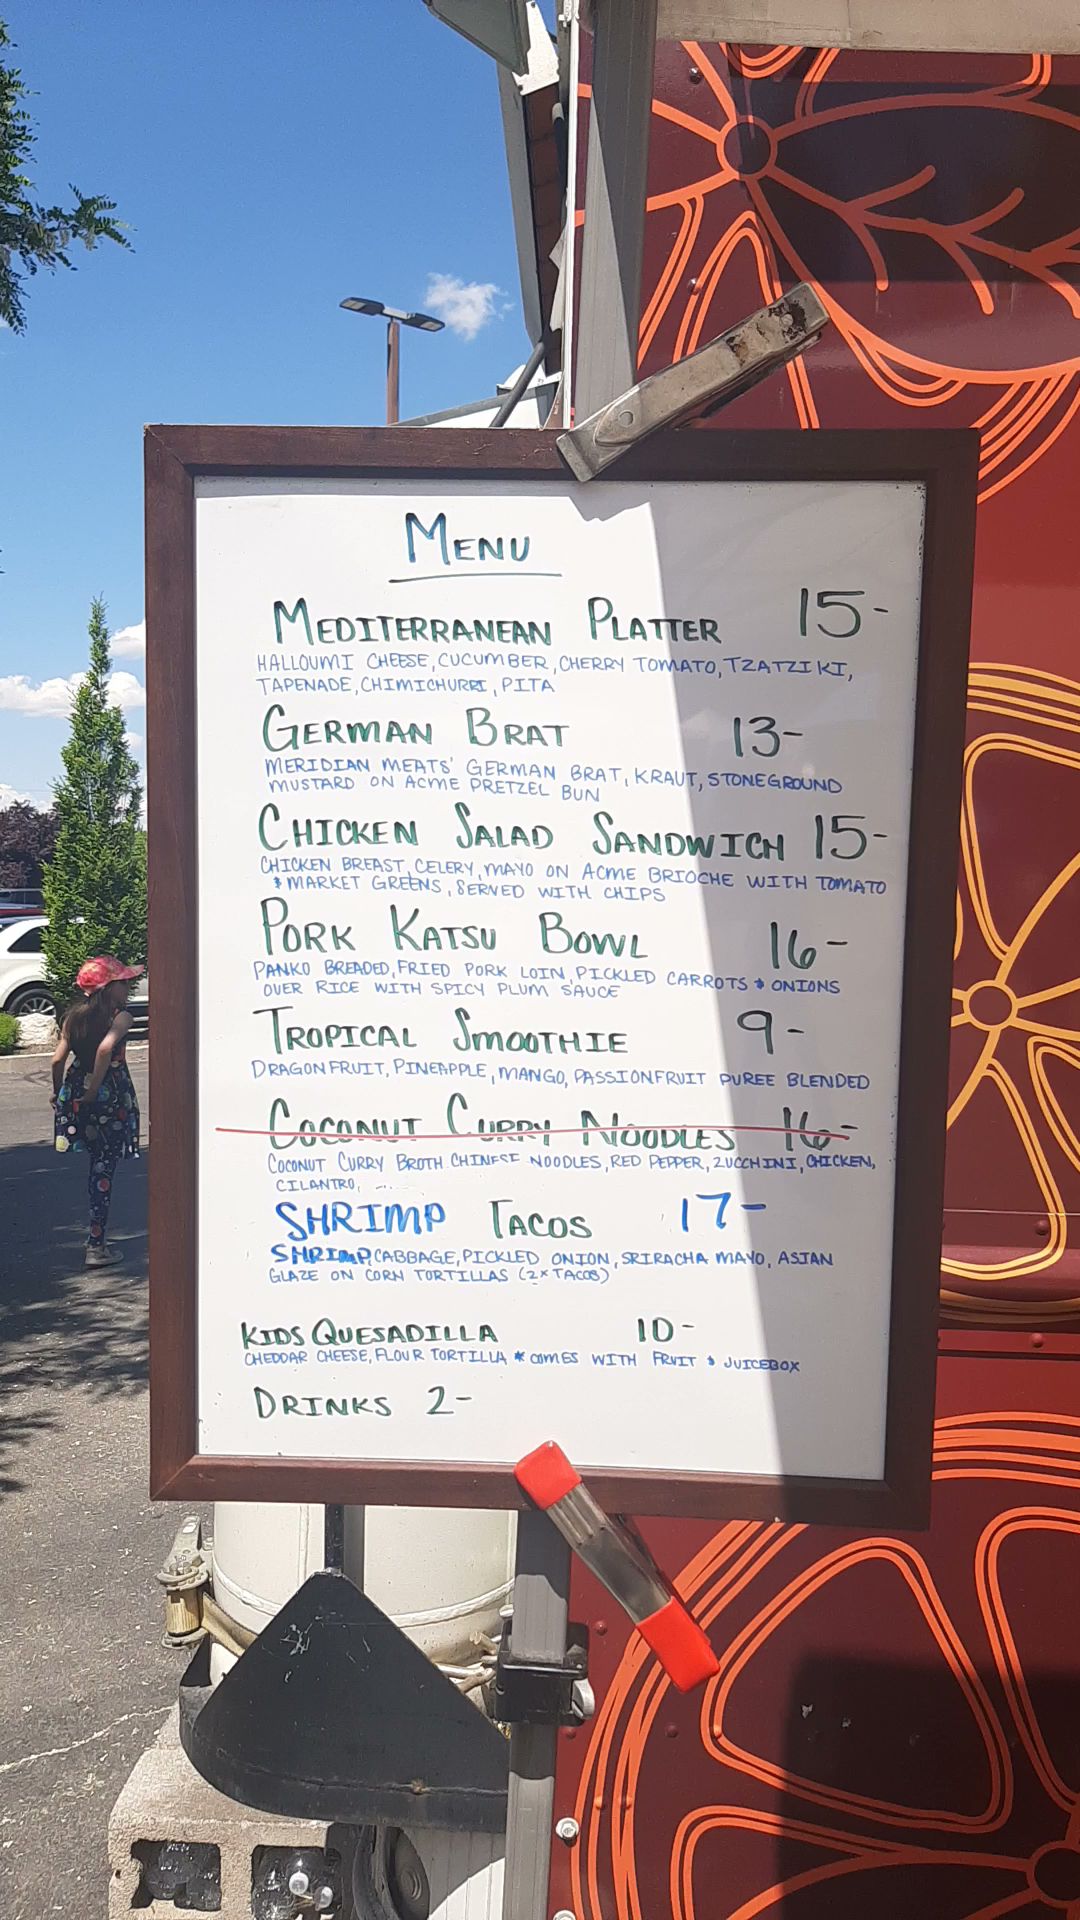 MENU
MEDITERRANEAN PLATTER 15-
HALLOUMI CHEESE, CUCUMBER, CHERRY TOMATO, TZATZIKI,
TAPENADE, CHIMICHURRI, PITA
GERMAN BRAT 13-
MERIDIAN MEATS' GERMAN BRAT, KRAUT, STONEGROUND
MUSTARD ON ACME PRETZEL BUN
CHICKEN SALAD SANDWICH 15-
CHICKEN BREAST, CELERY, MAYO ON ACME BRIOCHE WITH TOMATO
& MARKET GREENS, SERVED WITH CHIPS
PORK KATSU BOWL 16-
PANKO BREADED, FRIED PORK LOIN, PICKLED CARROTS & ONIONS
OVER RICE WITH SPICY PLUM SAUCE
TROPICAL SMOOTHIE 9-
DRAGONFRUIT, PINEAPPLE, MANGO, PASSIONFRUIT PUREE BLENDED
COCONUT CURRY NOODLES 16-
COCONUT CURRY BROTH. CHINESE NOODLES, RED PEPPER, ZUCCHINI, CHICKEN,
CILANTRO,
SHRIMP TACOS 17-
SHRIMP, CABBAGE, PICKLED ONION, SRIRACHA MAYO, ASIAN
GLAZE ON CORN TORTILLAS (2x TACOS)
KIDS QUESADILLA 10-
CHEDDAR CHEESE, FLOUR TORTILLA * COMES WITH FRUIT & JUICEBOX
DRINKS 2-